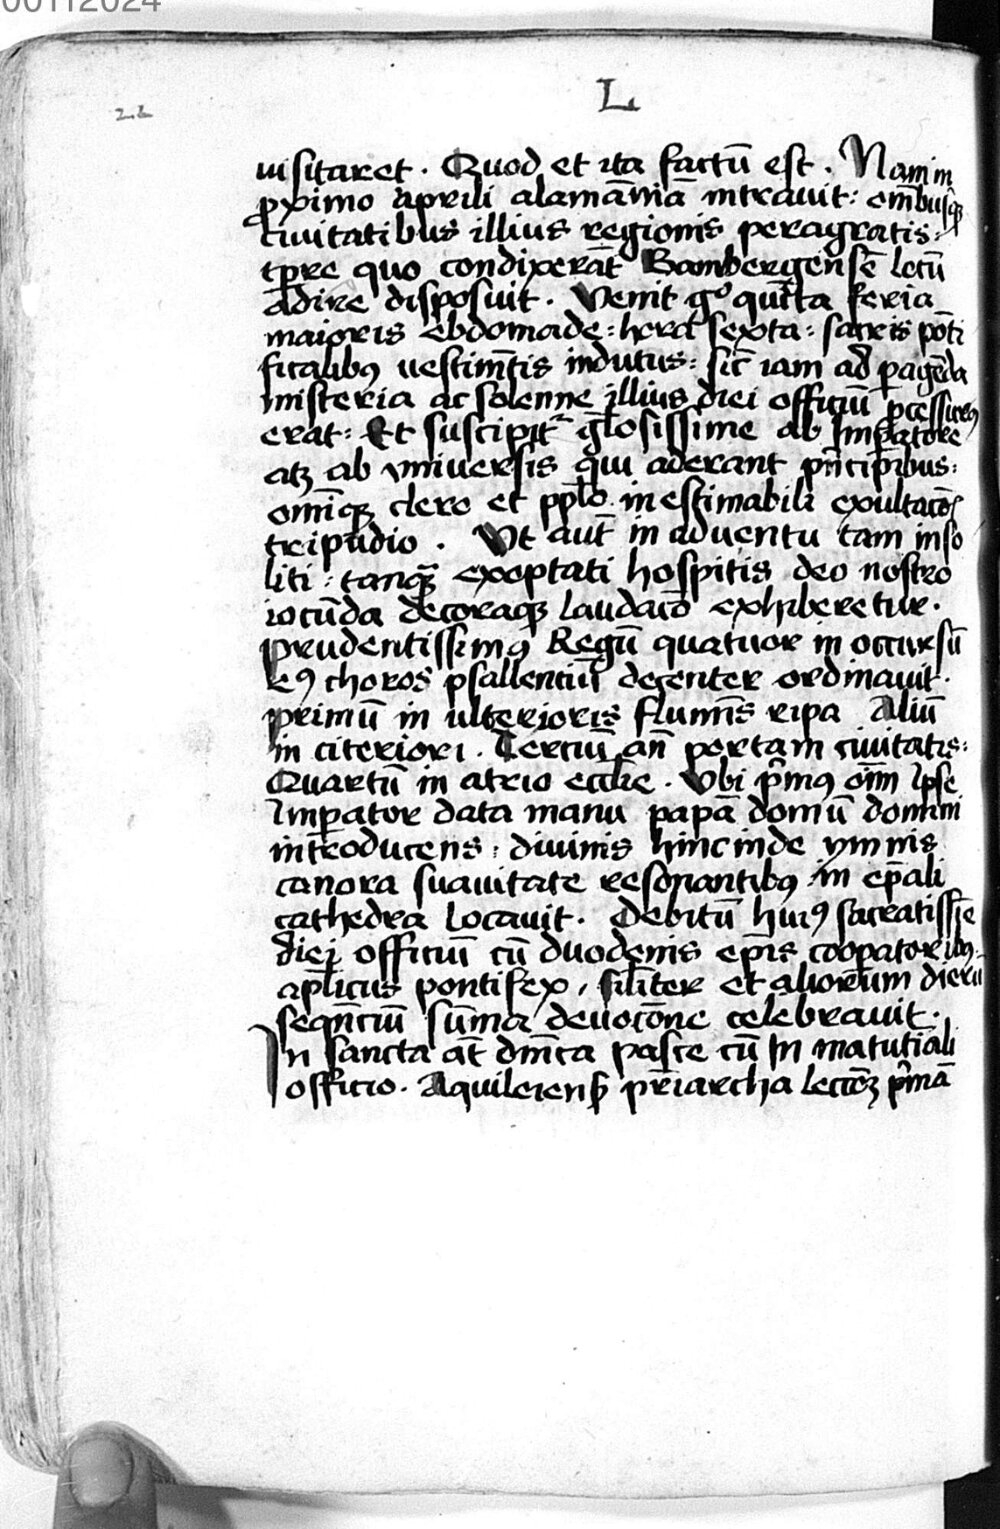 00112024
L
22
uisitaret . Quod et ita factū est . Nam in
ꝓximo aprili alamāniā intrauit : om̄ibusq̢ꝫ
ciuitatibus illius regionis peragratis :
tp̄re quo condixerat Bambergensē locū
adire disposuit . Venit gͦ quīta feria
maioris ebdomade : hora sexta : sacris pōti
ficalibꝰ uestimētis indutus : sic̄ iam ad ꝑagēda
misteria ac solenne illius diei officiū ꝓcessurꝰ
erat : Et suscipit᷑ gl̄osissime ab Imꝑatore
atꝫ ab vniuersis qui aderant pͥncipibus :
omniqꝫ clero et pplō inestimabili exultacōe
tripudio . Vt aut̄ in aduentu tam inso
liti : tanqꝫ exoptati hospitis deo nostro
iocūda decoraqꝫ laudacō exhiberetur .
prudentissimꝰ Regū quatuor in occursū
eꝰ choros psallenciū decenter ordinauit .
primū in ulterioris flumīs ripa Aliū
in citeriori . Terciū an̄ portam ciuitatis :
Quartū in atrio eccl̄ie . Vbi pͥmꝰ om̄i Ipse
Imꝑator data manu papā domū domini
introducens : diuinis hincinde ymnis
canora suauitate resonantibꝰ in ep̄ali
cathedra locauit . Debitū huiꝰ sacratissīe
diei officiū cū duodenis ep̄is cooꝑatoribꝰ :
ap̄licus pontifex , sil̄iter et aliorum dierū
seqn̄ciū sūma deuocōne celebrauit .
In sancta at̄ dn̄ica pasce cū in matutīali
officio . Aquileiensꝭ pr̄iarcha lectōꝫ pͥmā